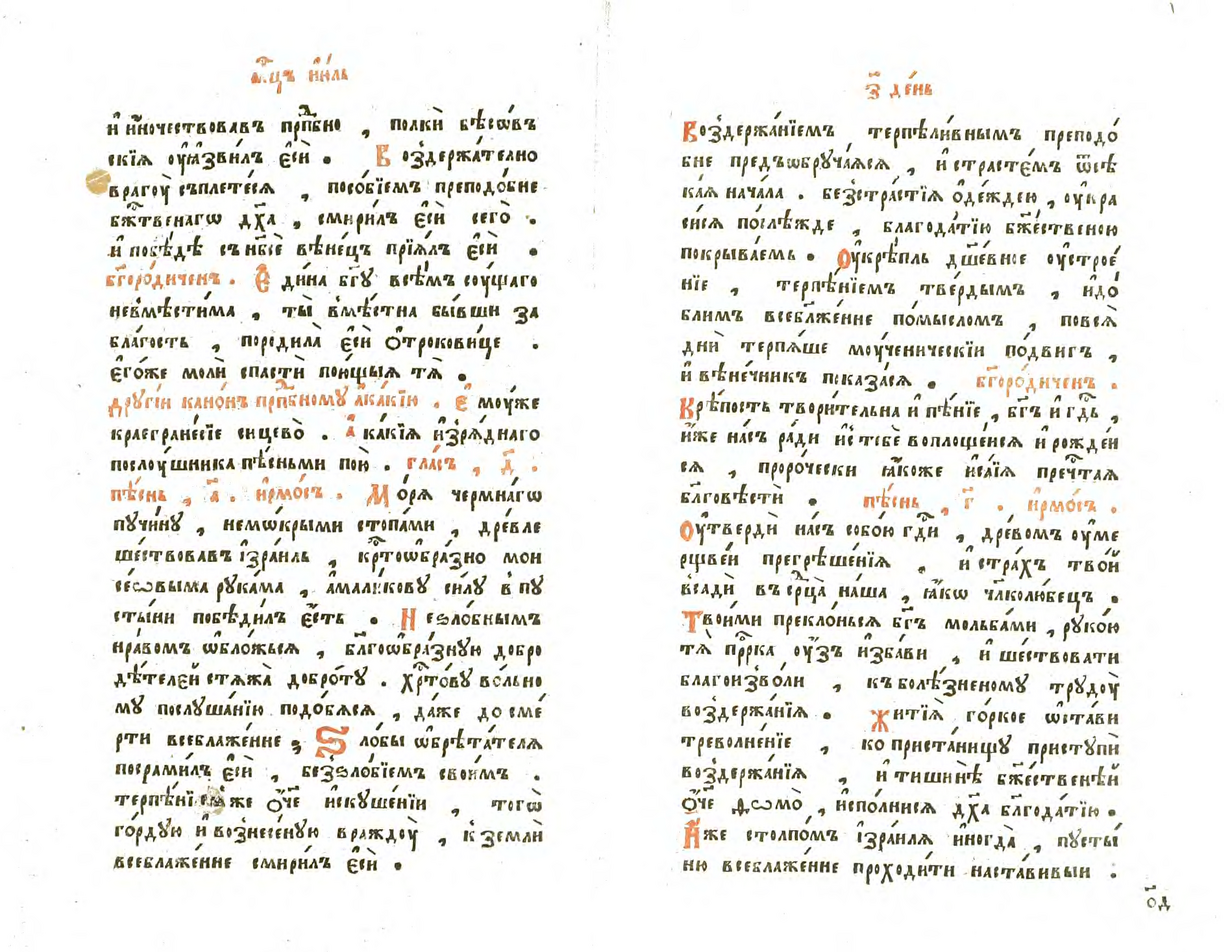 мⷭ҇цъ і҆ю́ль
и҆ и҆́ночествовавъ прпⷣбно , полкѝ бѣсѡ́въ
скїѧ ᲂу҆ꙗ҆зви́лъ є҆сѝ . Воздержа́телно
врагꙋ̀ съплете́сѧ , посо́бїемъ преподо́бне
бж҃твенагѡ дх҃а , смири́лъ є҆сѝ сего̀ .
и҆ побѣ́дѣ съ нб҃сѐ вѣне́цъ прїѧ́лъ є҆сѝ .
бг҃оро́диченъ . Є҆ди́на бг҃ꙋ всѣ́мъ сꙋ́щаго
невмѣсти́ма , ты̀ вмѣстна̀ бы́вши за
бла́гость , породила̀ є҆сѝ ѻ҆трокови́це .
є҆го́же молѝ спастѝ пою́щыѧ тѧ̀ .
дрꙋгі́и кано́нъ прпⷣбному а҆ка́кїю . є҆мꙋ́же
краегране́сїе си́цево̀ . А҆ка́кїѧ и҆зрѧ́днаго
послꙋ́шника пѣ́сньми пою̀ . гла́съ , д҃ .
пѣ́снь , а҃ . і҆рмо́съ . Мо́рѧ чермна́гѡ
пꙋчи́нꙋ , немо́крыми стопа́ми , дре́вле
ше́ствовавъ і҆зра́иль , крⷭ҇тоѡ҆бра́зно мои
се́ѡвыма рꙋка́ма , а҆мали́ковꙋ си́лꙋ в пꙋ
сты́ни побѣди́лъ є҆́сть . Неѕло́бнымъ
нра́вомъ ѡ҆бло́жьсѧ , бл҃гоѡ҆бра́знꙋю добро
дѣ́телей стѧжа̀ добро́тꙋ . хрⷭ҇то́вꙋ во́льно
мꙋ послꙋша́нїю подо́бѧсѧ , да́же до сме́
рти всеблаже́нне , Ѕло́бы ѡ҆брѣта́телѧ
посрами́лъ є҆сѝ , безѕло́бїемъ свои́мъ .
го́рдꙋю и҆ вознесе́нꙋю враждꙋ̀ , к землѝ
всеблаже́нне смири́лъ є҆сѝ .
з҃ де́нь
Воздержа́нїемъ терпѣли́внымъ преподо́
бне предъѡбрꙋча́ѧсѧ , и҆ страсте́мъ ѿсѣ
ка́ѧ нача́ла . безстра́стїѧ ѻ҆де́ждею , ᲂу҆кра
си́сѧ послѣ́жде , благода́тїю бж҃е́ственою
покрыва́емь . Оу҆крѣ́пль дш҃е́вное ᲂу҆строе́
нїе , терпѣ́нїемъ тве́рдымъ , и҆ до́
блимъ всебл҃же́нне по́мысломъ , по всѧ̀
днѝ терпѧ́ше мꙋ́ченическїи по́двигъ ,
и҆ вѣне́чникъ показа́сѧ . бг҃оро́диченъ .
Крѣ́пость твори́тельна и҆ пѣ́нїе , бг҃ъ и҆ гдⷭ҇ь ,
и҆́же на́съ ра́ди и҆с тебѐ воплоще́йсѧ и҆ рожде́и
сѧ , проро́чески ꙗ҆́коже и҆са́їѧ пречⷭ҇таѧ
бл҃говѣстѝ . пѣ́снь , г҃ . і҆рмо́съ .
Оу҆твердѝ на́съ собо́ю гдⷭ҇и , дре́вомъ ᲂу҆ме
рщве́и прегрѣше́нїѧ , и҆ стра́хъ тво́й
всадѝ въ срⷣца̀ на́ша , ꙗ҆́кѡ чл҃колю́бецъ .
Твои́ми прекло́нься бг҃ъ мольба́ми , рꙋко́ю
тѧ̀ прⷪ҇рка ᲂу҆́зъ и҆зба́ви , и҆ ше́ствовати
благоизво́ли , къ болѣ́зненомꙋ трꙋдꙋ̀
воздержа́нїѧ . Житїѧ̀ го́ркое ѡ҆ста́ви
треволне́нїе , ко приста́нищꙋ пристꙋпѝ
воздержа́нїѧ , и҆ тишинѣ̀ бж҃е́ственѣй
ѻ҆́ч҃е ѳѡмо̀ , и҆спо́лнисѧ дх҃а благода́тїю .
И҆́же столпо́мъ і҆зра́илѧ и҆ногда̀ , пꙋсты́
ню всеблаже́нне проходи́ти наста́вивыи .
ѻ҃д